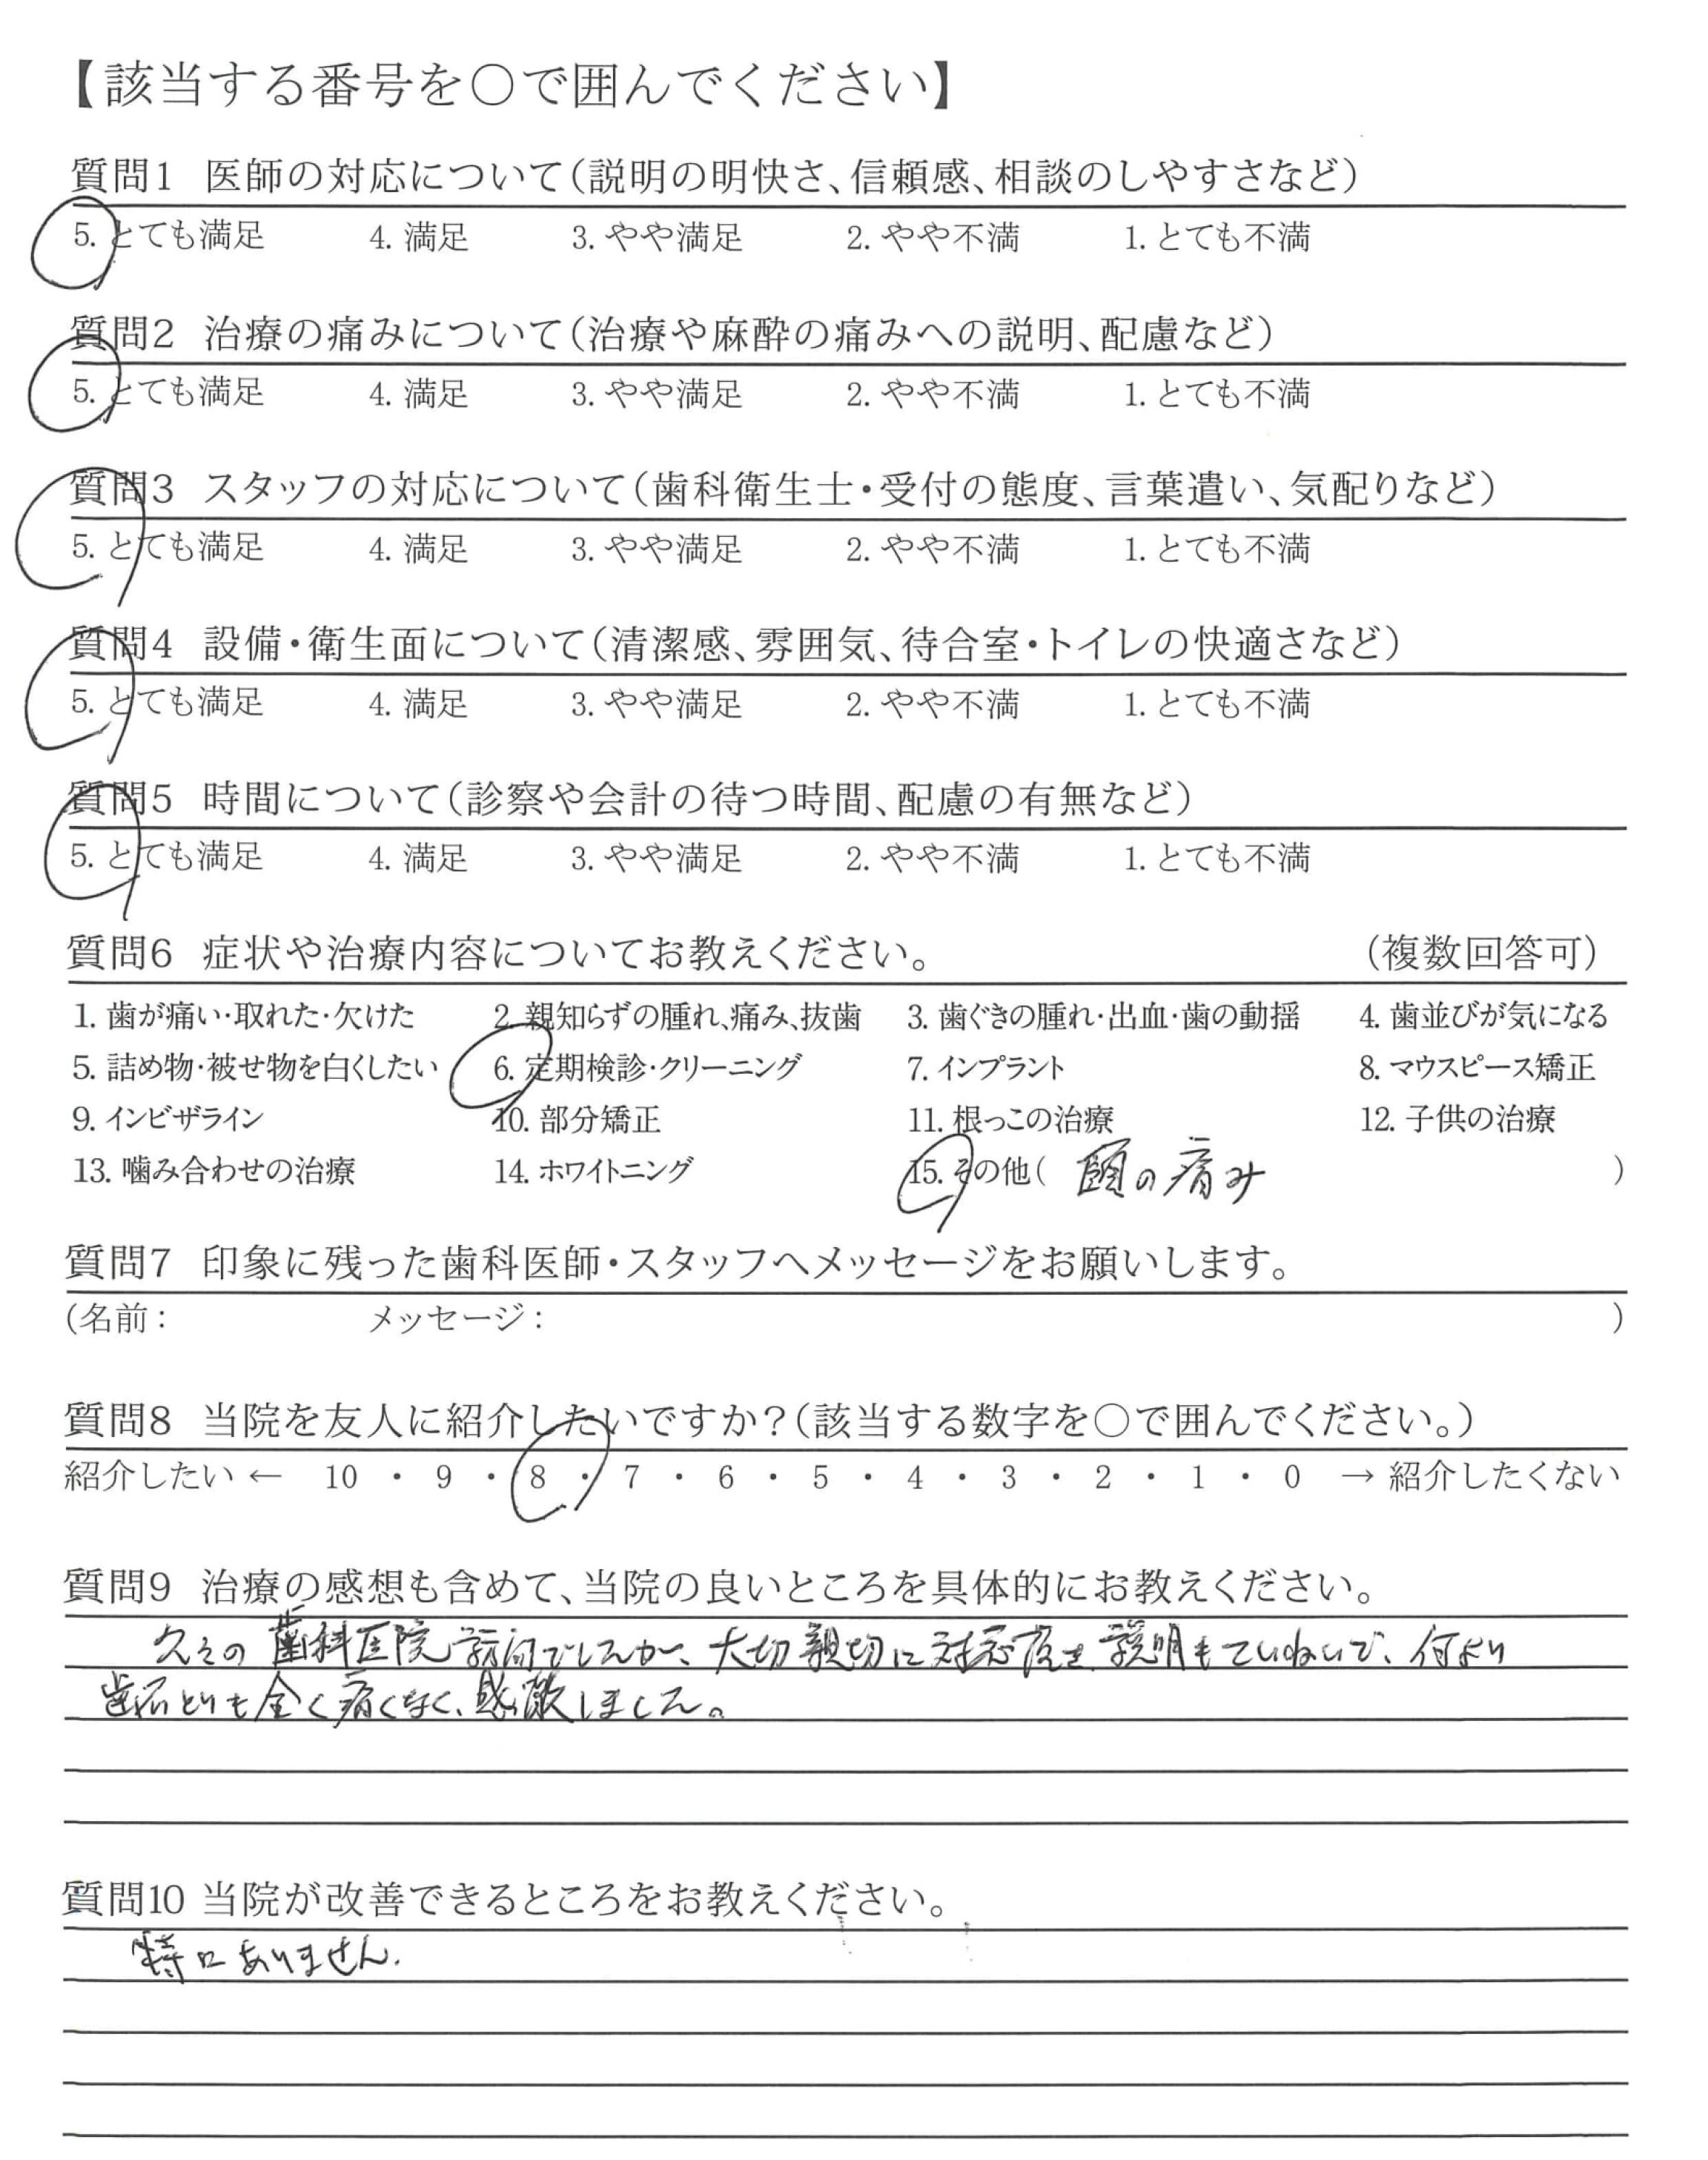 【該当する番号を○で囲んでください】
質問1 医師の対応について(説明の明快さ、信頼感、相談のしやすさなど)
5. とても満足 4. 満足 3. やや満足 2. やや不満 1. とても不満
質問2 治療の痛みについて(治療や麻酔の痛みへの説明、配慮など)
5. とても満足 4. 満足 3. やや満足 2. やや不満 1. とても不満
質問3 スタッフの対応について(歯科衛生士・受付の態度、言葉遣い、気配りなど)
5. とても満足 4. 満足 3. やや満足 2. やや不満 1. とても不満
質問4 設備・衛生面について(清潔感、雰囲気、待合室・トイレの快適さなど)
5. とても満足 4. 満足 3. やや満足 2. やや不満 1. とても不満
質問5 時間について(診察や会計の待つ時間、配慮の有無など)
5. とても満足 4. 満足 3. やや満足 2. やや不満 1. とても不満
質問6 症状や治療内容についてお教えください。 (複数回答可)
1. 歯が痛い・取れた・欠けた 2. 親知らずの腫れ、痛み、抜歯 3. 歯ぐきの腫れ・出血・歯の動揺 4. 歯並びが気になる
5. 詰め物・被せ物を白くしたい 6. 定期検診・クリーニング 7. インプラント 8. マウスピース矯正
9. インビザライン 10. 部分矯正 11. 根っこの治療 12. 子供の治療
13. 噛み合わせの治療 14. ホワイトニング 15. その他( の痛み )
質問7 印象に残った歯科医師・スタッフへメッセージをお願いします。
(名前: メッセージ: )
質問8 当院を友人に紹介したいですか?(該当する数字を○で囲んでください。)
紹介したい ← 10 ・ 9 ・ 8 ・ 7 ・ 6 ・ 5 ・ 4 ・ 3 ・ 2 ・ 1 ・ 0 → 紹介したくない
質問9 治療の感想も含めて、当院の良いところを具体的にお教えください。
歯科医院訪問でしたが、大切親切に対応頂き、説明もていねいで、何より
歯石とりも全く痛くなく、感激しました。
質問10 当院が改善できるところをお教えください。
特にありません.